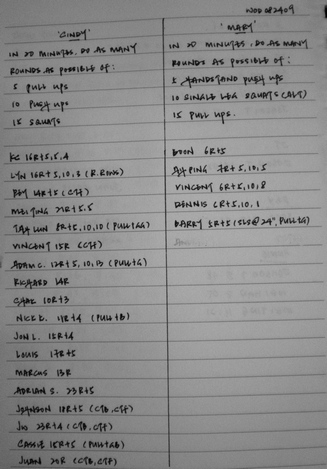 WOD 082409
'CINDY'
IN 20 MINUTES, DO AS MANY
ROUNDS AS POSSIBLE OF:
5 PULL UPS
10 PUSH UPS
15 SQUATS
KC 16R+5,5,4
LYN 16R+5,10,3 (R.ROWS)
BEY 14R+5 (CFF)
MEITING 21R+5,5
TAH LUN 8R+5,10,10
VINCENT 15R (CFF)
ADAM C. 12R+5,10,13 (PULL+G)
RICHARD 14R
CHAK 10R+3
NICK K. 11R+4 (PULL+B)
JON L. 15R+4
LOUIS 17R+5
MARCUS 13R
ADRIAN S. 23R+5
JOHNSON 18R+5 (CTB, CFF)
JIO 23R+4 (CTB, CFF)
CASSIE 15R+5
JUAN 20R (CTB, CFF)
'MARY'
IN 20 MINUTES, DO AS MANY
ROUNDS AS POSSIBLE OF:
5 HANDSTAND PUSH UPS
10 SINGLE LEG SQUATS (ALT)
15 PULL UPS.
EDON 6R+5
AIPING 7R+5,10,5
VINCENT 6R+5,10,8
DENNIS 6R+5,10,1
BARRY 5R+5 (SLS@24", PULL+G)